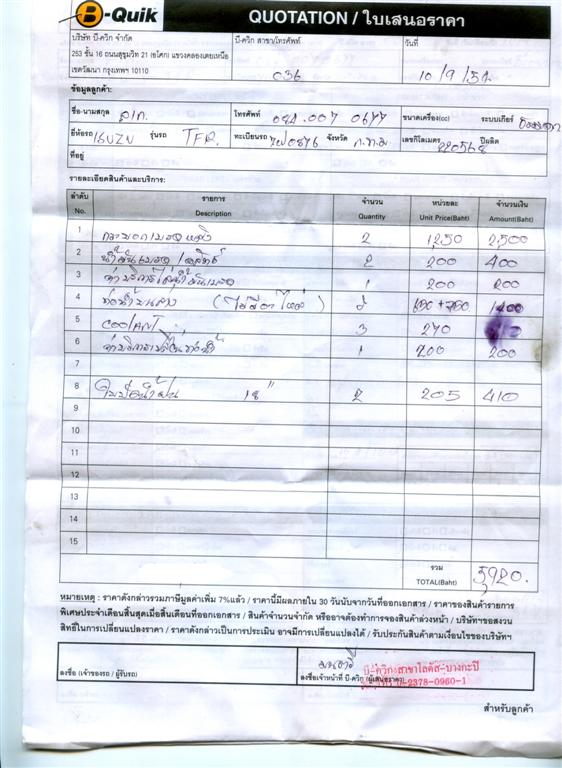 B-Quik
QUOTATION / ใบเสนอราคา
บริษัท บี-ควิก จำกัด
253 ชั้น 16 ถนนสุขุมวิท 21 (อโศก) แขวงคลองเตยเหนือ
เขตวัฒนา กรุงเทพฯ 10110
บี-ควิก สาขา/โทรศัพท์
036
วันที่
10/9/54
ข้อมูลลูกค้า:
ชื่อ-นามสกุล โทรศัพท์ 084.007 0677 ขนาดเครื่อง(cc) ระบบเกียร์
ยี่ห้อรถ ISUZU รุ่นรถ TFR. ทะเบียนรถ จังหวัด ก.ท.ม เลขกิโลเมตร 220568 ปีผลิต
ที่อยู่
รายละเอียดสินค้าและบริการ:
ลำดับ รายการ จำนวน หน่วยละ จำนวนเงิน
No. Description Quantity Unit Price(Baht) Amount(Baht)
1 กระบอกเบรคหลัง 2 1250 2,500
2 น้ำมันเบรค 2 200 400
3 ค่าบริการ น้ำมันเบรค 1 200 200
4 ท่อน้ำบนล่าง 2 1400
5 COOLANT 3 270
6 ค่าบริการเปลี่ยนท่อน้ำ 1 200 200
7
8 ใบปัดน้ำฝน 18" 2 205 410
9
10
11
12
13
14
15
รวม
TOTAL(Baht) 5,920.
หมายเหตุ : ราคาดังกล่าวรวมภาษีมูลค่าเพิ่ม 7%แล้ว / ราคานี้มีผลภายใน 30 วันนับจากวันที่ออกเอกสาร / ราคาของสินค้ารายการ
พิเศษประจำเดือนสิ้นสุดเมื่อสิ้นเดือนที่ออกเอกสาร / สินค้าจำนวนจำกัด หรืออาจต้องทำการจองสินค้าล่วงหน้า / บริษัทฯขอสงวน
สิทธิ์ในการเปลี่ยนแปลงราคา / ราคาดังกล่าวเป็นการประเมิน อาจมีการเปลี่ยนแปลงได้ / รับประกันสินค้าตามเงื่อนไขของบริษัทฯ
ลงชื่อ (เจ้าของรถ / ผู้รับรถ)
ลงชื่อเจ้าหน้าที่ บี-ควิก (ผู้เสนอราคา)
บี-ควิก สาขาโลตัส-บางกะปิ
0-2378-0960-1
สำหรับลูกค้า